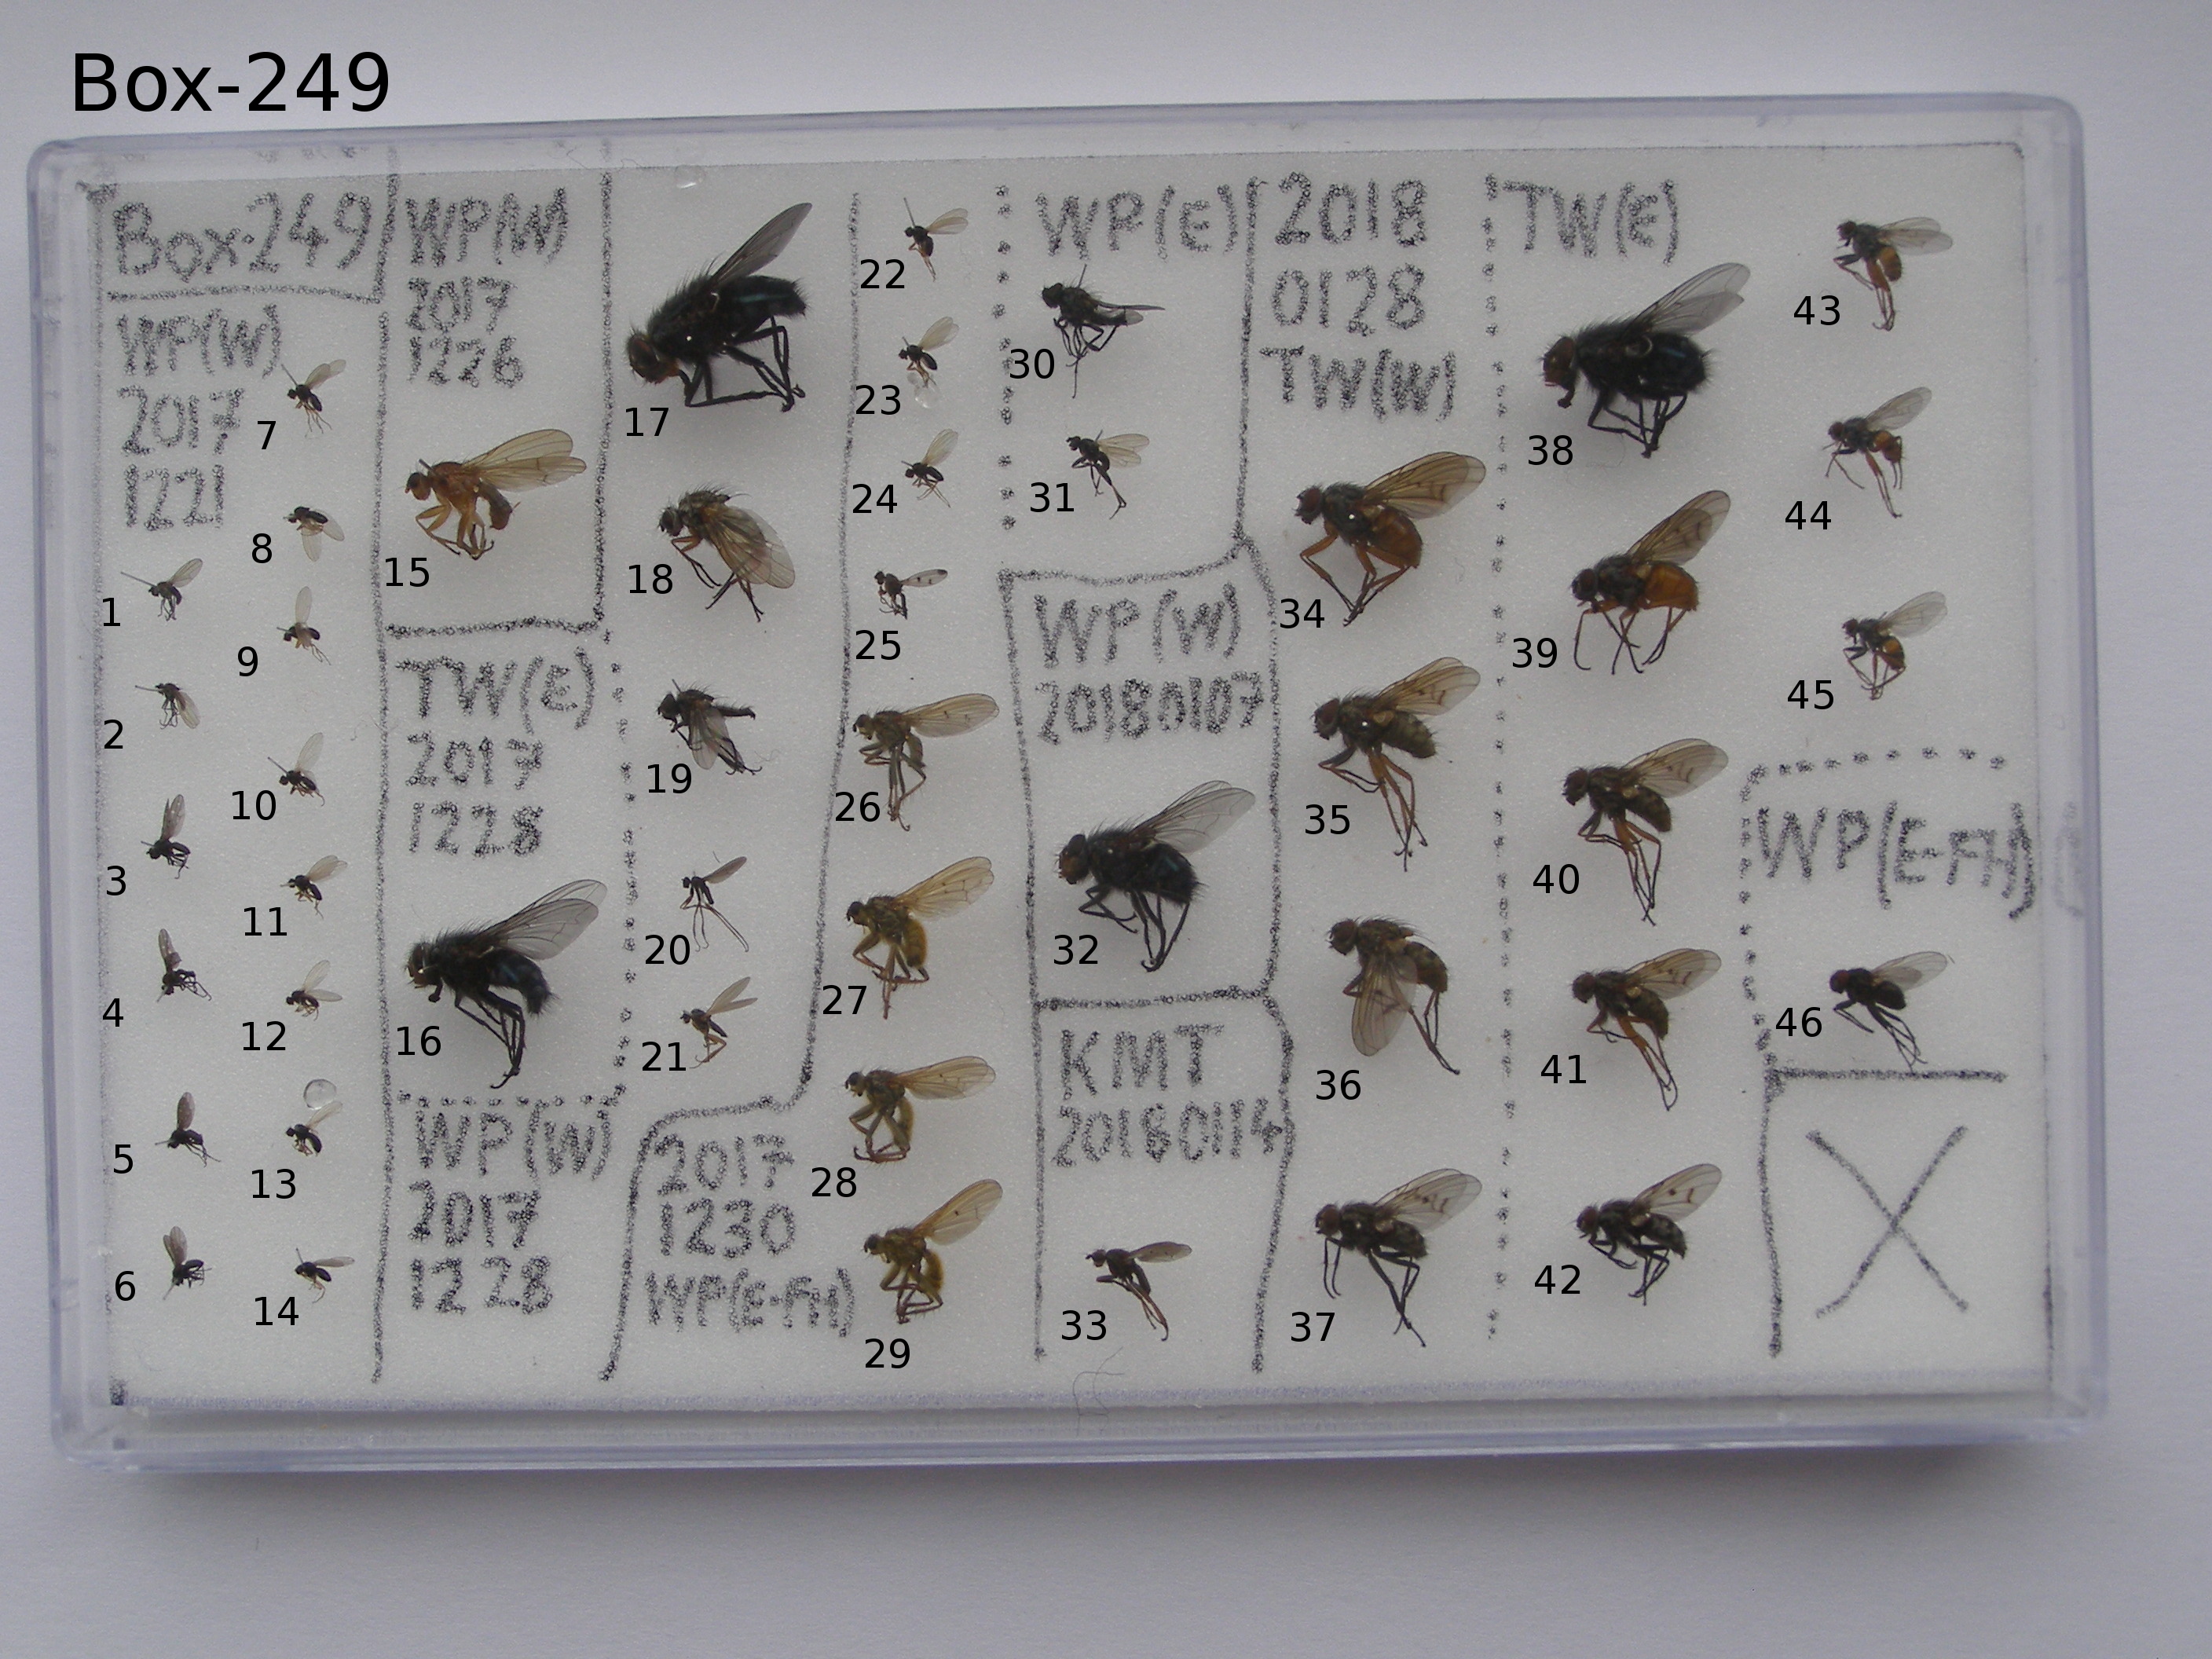 Box-249
Box-249
WP(W)
2017
1221
1
2
3
4
5
6
7
8
9
10
11
12
13
14
WP(W)
2017
1226
15
TW(E)
2017
1228
16
WP(W)
2017
1228
17
18
19
20
21
2017
1230
WP(E-FH)
22
23
24
25
26
27
28
29
WP(E)
30
31
WP(W)
20180107
32
KMT
20180114
33
2018
0128
TW(W)
34
35
36
37
TW(E)
38
39
40
41
42
43
44
45
WP(E-FH)
46
X